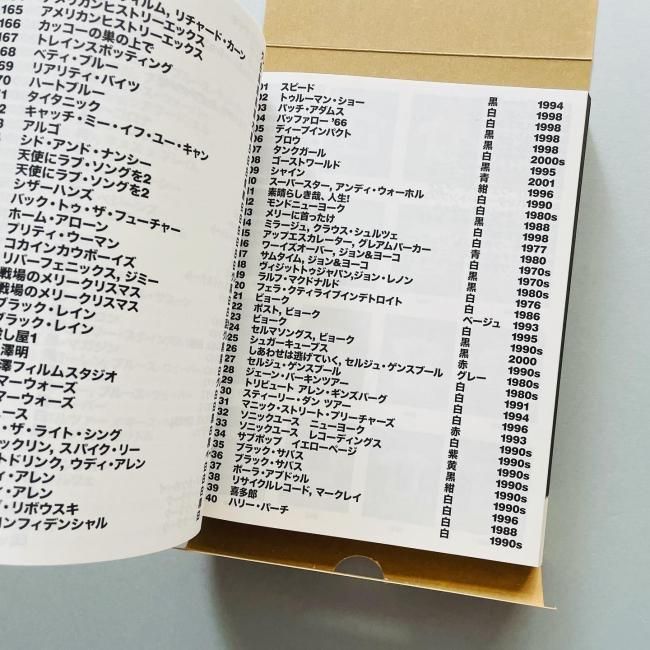 165 アメリカンヒストリーエックス
166 アメリカンヒストリーエックス
167 カッコーの巣の上で
トレインスポッティング
ベティ・ブルー
リアリティ・バイツ
ハートブルー
タイタニック
キャッチ・ミー・イフ・ユー・キャン
アルゴ
シド・アンド・ナンシー
天使にラブ・ソングを2
天使にラブ・ソングを2
シザーハンズ
バック・トゥ・ザ・フューチャー
ホーム・アローン
プリティ・ウーマン
コカインカウボーイズ
リバーフェニックス, ジミー
戦場のメリークリスマス
戦場のメリークリスマス
ブラック・レイン
ブラック・レイン
殺し屋1
澤明
澤フィルムスタジオ
マーウォーズ
マーウォーズ
ュース
・ザ・ライト・シング
ックリン, スパイク・リー
トドリンク, ウディ・アレン
ィ・アレン
ィ・アレン
グ・リボウスキ
コンフィデンシャル
01 スピード 黒 1994
02 トゥルーマン・ショー 白 1998
03 パッチ・アダムス 白 1998
04 バッファロー '66 黒 1998
05 ディープインパクト 黒 1998
06 ブロウ 白 2000s
07 タンクガール 黒 1995
08 ゴーストワールド 青 2001
09 シャイン 紺 1996
10 スーパースター, アンディ・ウォーホル 白 1990
11 素晴らしき哉、人生! 白 1980s
12 モンドニューヨーク 黒 1988
13 メリーに首ったけ 1998
14 ミラージュ, クラウス・シュルツェ 1977
15 アップエスカレーター, グレアムパーカー 1980
16 ワーイズオーバー, ジョン&ヨーコ 1970s
17 サムタイム, ジョン&ヨーコ 1970s
18 ヴィジットトゥジャパン,ジョン・レノン 1980s
19 ラルフ・マクドナルド 1976
20 フェラ・クティライブインデトロイト 1986
21 ビョーク ベージュ 1993
22 ポスト, ビョーク 白 1995
23 ビョーク 黒 1990s
24 セルマソングス, ビョーク 赤 2000
25 シュガーキューブス グレー 1990s
26 しあわせは逃げていく, セルジュ・ゲンスブール 白 1980s
27 セルジュ・ゲンスブール 白 1980s
28 ジェーン・バーキンツアー 白 1991
29 トリビュート アレン・ギンズバーグ 赤 1994
30 スティーリー・ダン ツアー 白 1996
31 マニック・ストリート・プリーチャーズ 紫 1993
32 ソニックユース ニューヨーク 黄 1990s
33 ソニックユース レコーディングス 黒 1990s
34 サブポップ イエローページ 紺 1990s
35 ブラック・サバス 白 1990s
36 ブラック・サバス 白 1990s
37 ポーラ・アブドゥル 白 1990s
38 リサイクルレコード, マークレイ 白 1996
39 喜多郎 1988
40 ハリー・パーチ 1990s